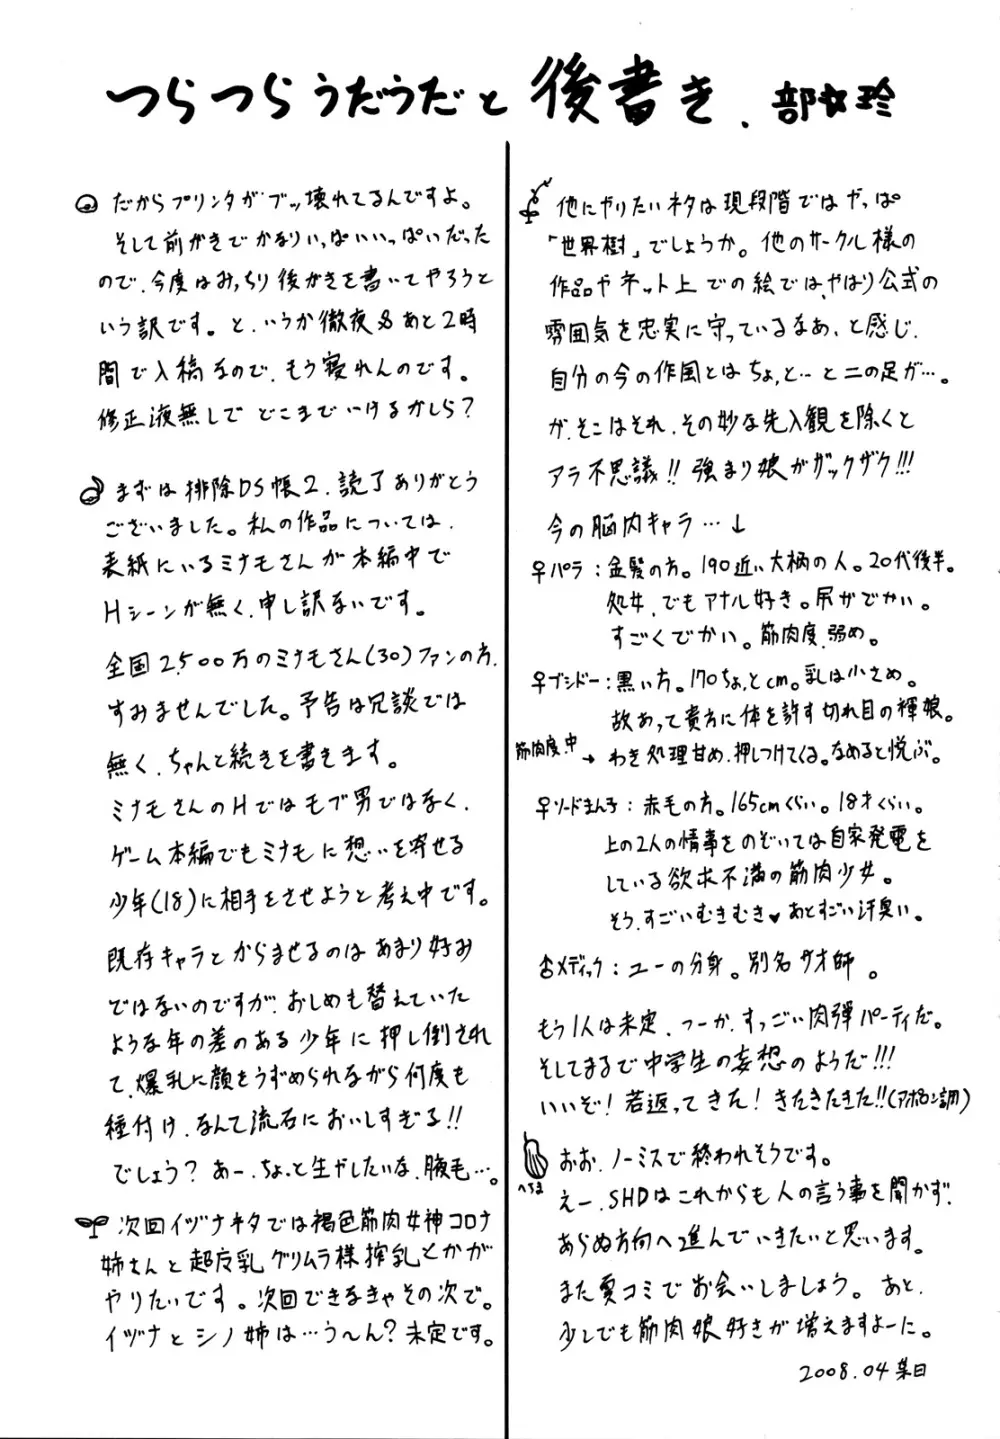 つらつらうだうだと後書き、部☆玲
だからプリンタがブッ壊れてるんですよ。
そして前がきでかなりいっぱいいっぱいだった
ので、今度はみっちり後がきを書いてやろうと
いう訳です。と、いうか徹夜&あと2時
間で入稿なので、もう寝れんのです。
修正液無しでどこまでいけるかしら?
まずは排除DS帳2、読了ありがとう
ございました。私の作品については、
表紙にいるミナモさんが本編中で
Hシーンが無く、申し訳ないです。
全国2,500万のミナモさん(30)ファンの方、
すみませんでした。予告は冗談では
無く、ちゃんと続きを書きます。
ミナモさんのHではモブ男ではなく、
ゲーム本編でもミナモに想いを寄せる
少年(18)に相手をさせようと考え中です。
既存キャラとからませるのはあまり好み
ではないのですが、おしめも替えていた
ような年の差のある少年に押し倒され
て、爆乳に顔をうずめられながら何度も
種付け、なんて流石においしすぎる!!
でしょう?あー、ちょっと生やしたいな、腋毛…。
次回イヅナネタでは褐色筋肉女神コロナ
姉さんと超反乳グリムラ様搾乳とかが
やりたいです。次回できなきゃその次で。
イヅナとシノ姉は…う〜ん?未定です。
他にやりたいネタは現段階ではやっぱ
「世界樹」でしょうか。他のサークル様の
作品やネット上での絵では、やはり公式の
雰囲気を忠実に守っているなあ、と感じ、
自分の今の作風とはちょっと…と二の足が…。
が、そこはそれ、その妙な先入観を除くと
アラ不思議!!強まり娘がザックザク!!!
今の脳内キャラ…↓
♀パラ:金髪の方。190近い大柄の人。20代後半。
処女、でもアナル好き。尻がでかい。
すごくでかい。筋肉度、弱め。
♀ブシドー:黒い方。170ちょっとcm。乳は小さめ。
故あって貴方に体を許す切れ目の褌娘。
筋肉度、中→わき処理甘め、押しつけてくる。なめると悦ぶ。
♀ソードまん子:赤毛の方。165cmくらい。18才くらい。
上の2人の情事をのぞいては自家発電を
している欲求不満の筋肉少女。
そう、すごいむきむき♥あとすごい汗臭い。
♂メディック:ユーの分身。別名サオ師。
もう1人は未定、つーか、すっごい肉弾パーティだ。
そしてまるで中学生の妄想のようだ!!!
いいぞ!若返ってきた!きたきたきた!!(アポロン調)
へちま
おお、ノーミスで終われそうです。
えー、SHDはこれからも人の言う事を聞かず、
あらぬ方向へ進んでいきたいと思います。
また夏コミでお会いしましょう。あと、
少しでも筋肉娘好きが増えますよーに。
2008.04某日